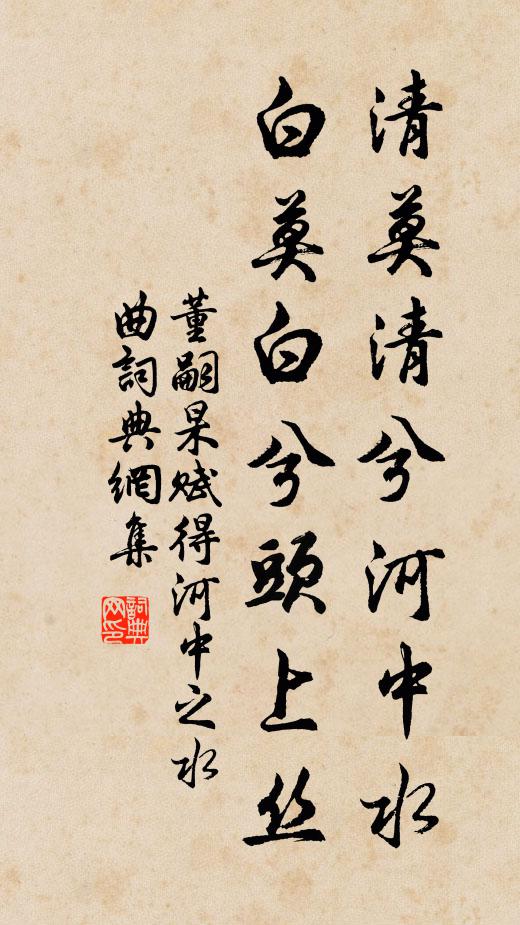 清莫清兮河中水
白莫白兮頭上丝
董嗣杲赋得河中之水
曲詞典網集
詞典网印